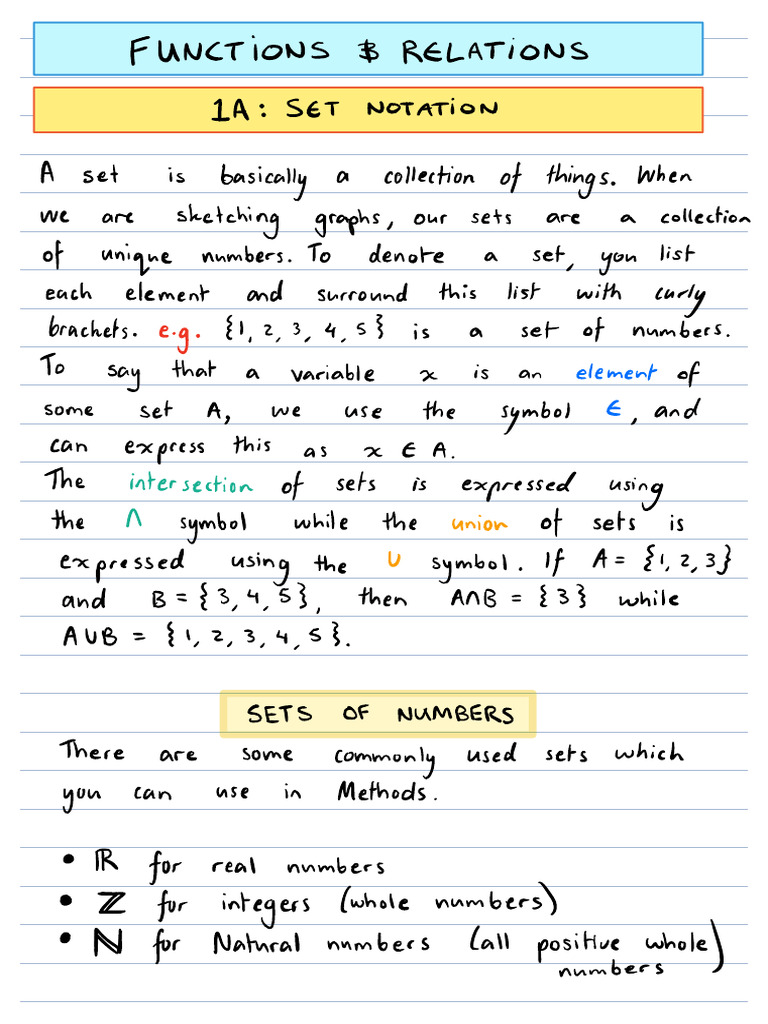 FUNCTIONS & RELATIONS
1A: SET NOTATION
A set is basically a collection of things. When
we are sketching graphs, our sets are a collection
of unique numbers. To denote a set, you list
each element and surround this list with curly
brackets. e.g. {1, 2, 3, 4, 5} is a set of numbers.
To say that a variable x is an element of
some set A, we use the symbol ∈, and
can express this as x ∈ A.
The intersection of sets is expressed using
the ∩ symbol while the union of sets is
expressed using the ∪ symbol. If A = {1, 2, 3}
and B = {3, 4, 5}, then A∩B = {3} while
A∪B = {1, 2, 3, 4, 5}.
SETS OF NUMBERS
There are some commonly used sets which
you can use in Methods.
• ℝ for real numbers
• ℤ for integers (whole numbers)
• ℕ for Natural numbers (all positive whole
numbers)